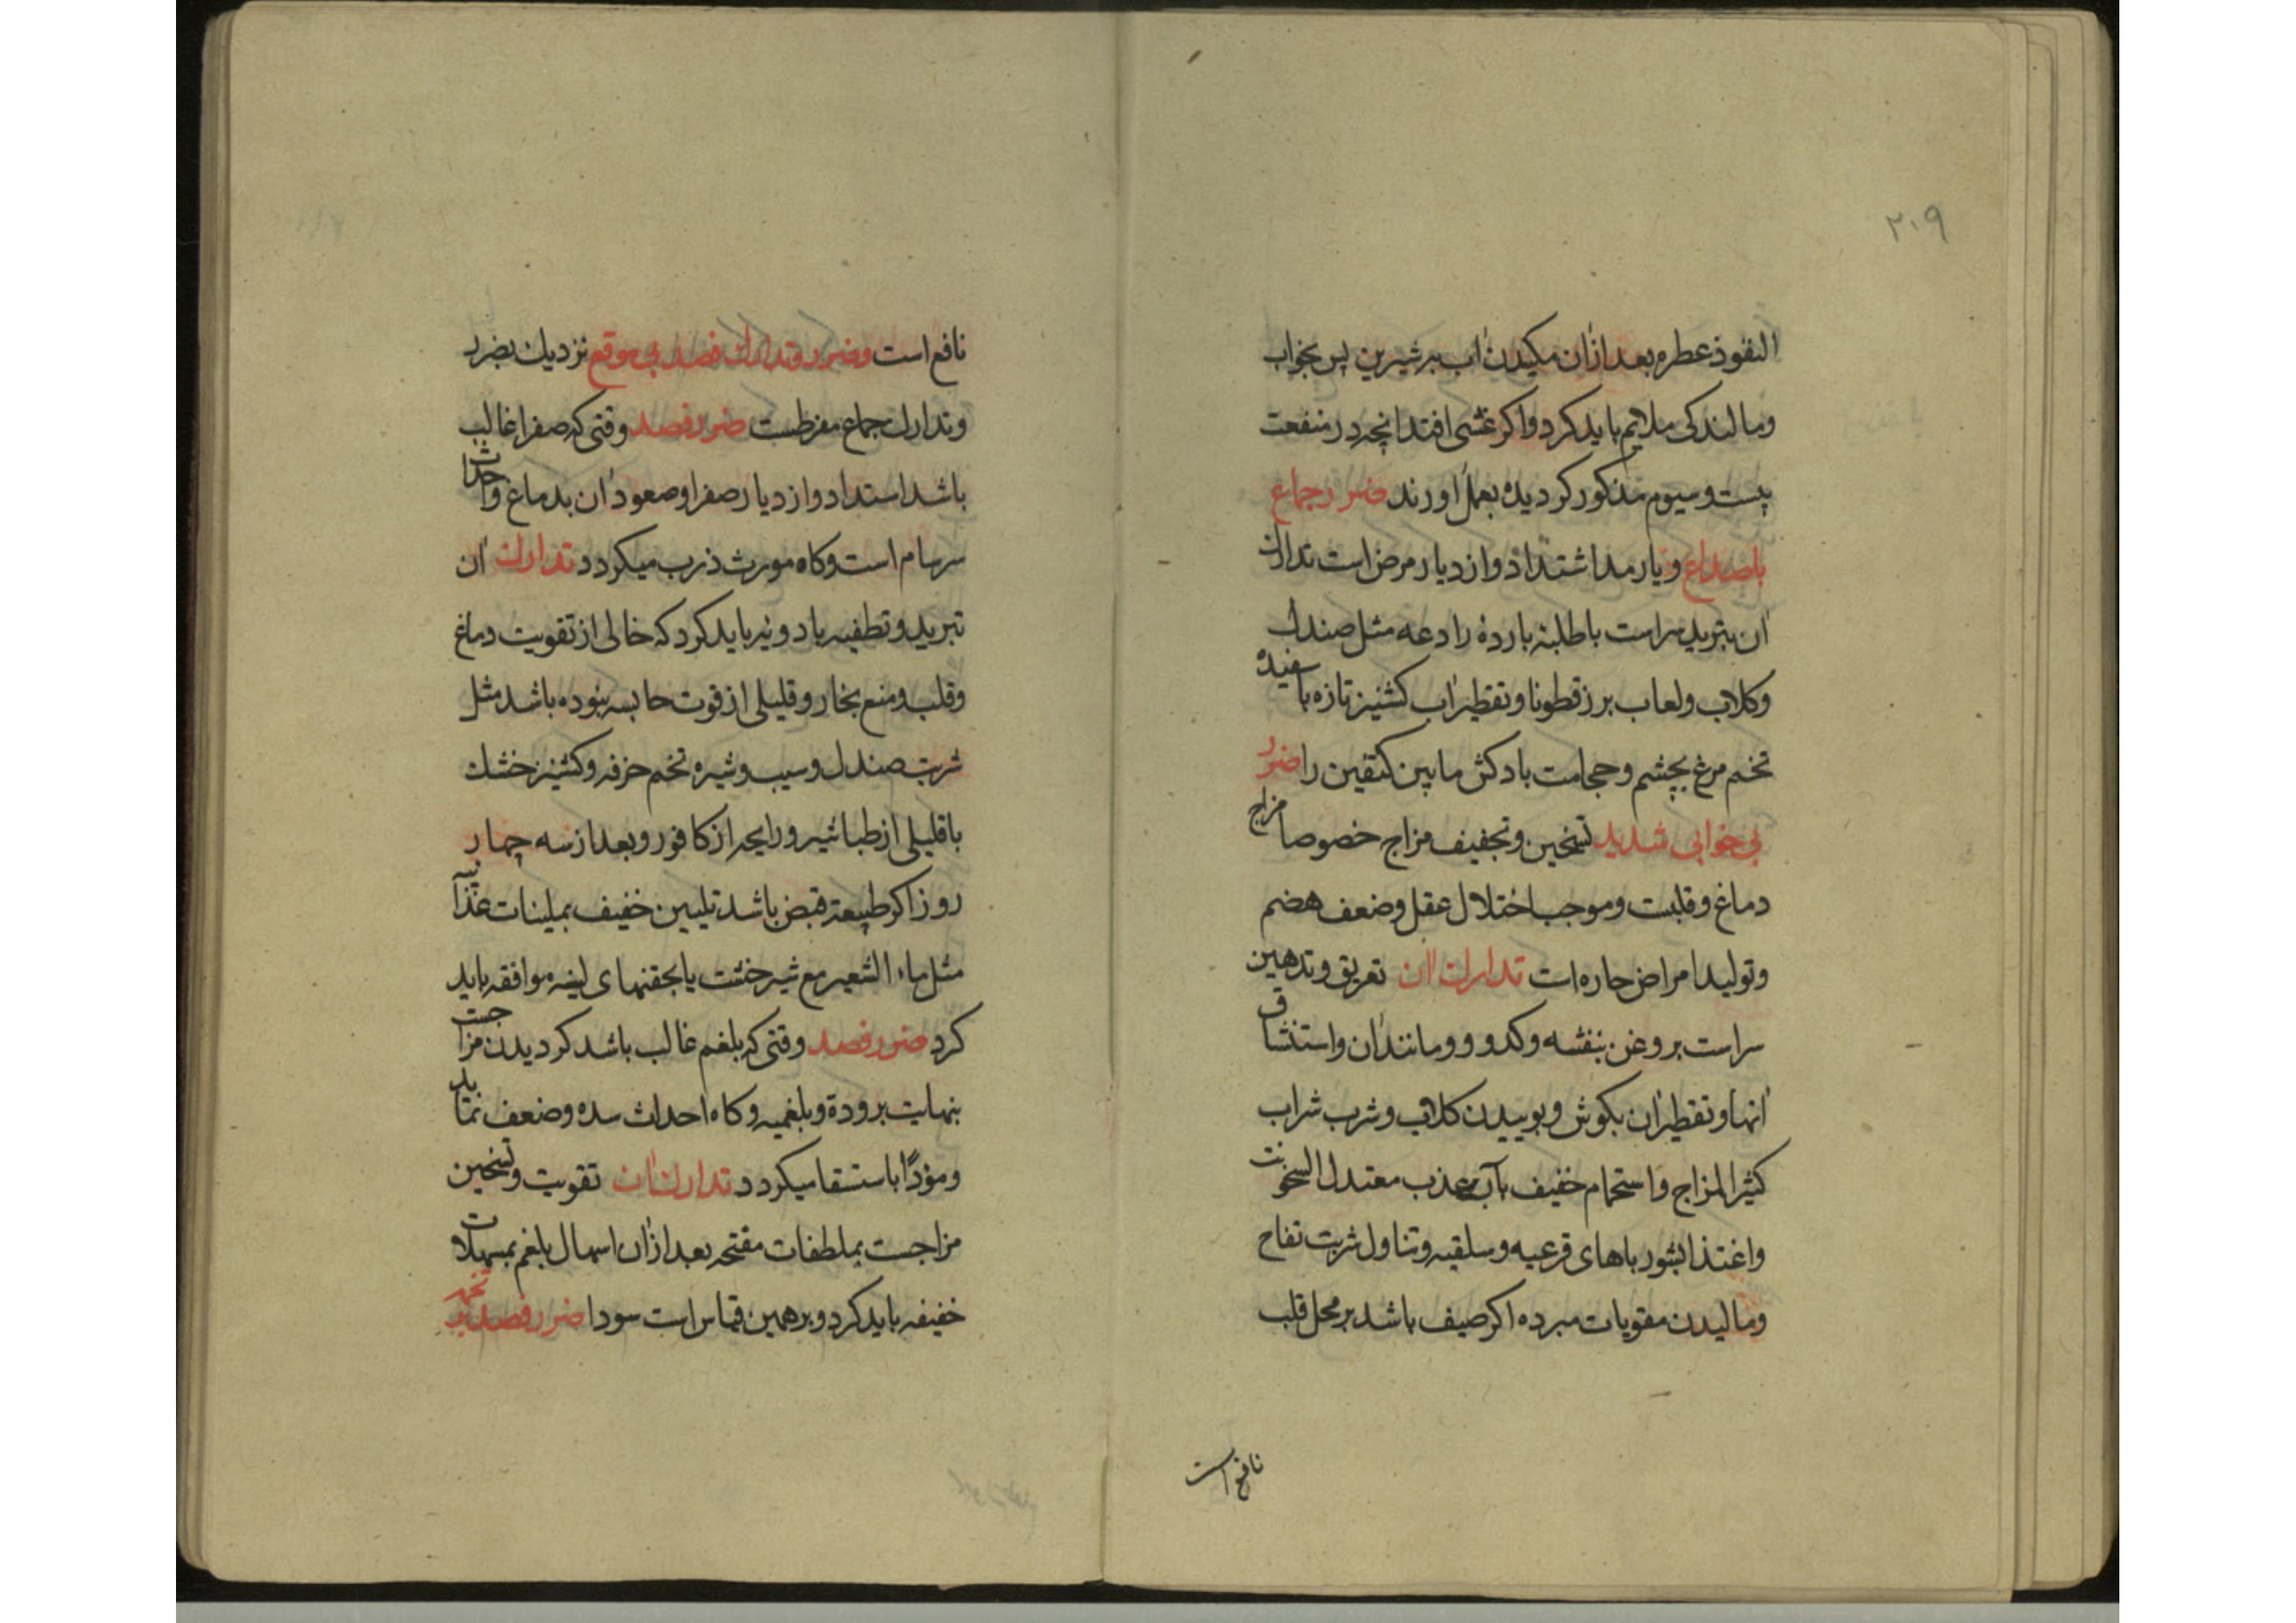 ٢٠٩
النفوذ عطره بعد ازان مکیدن اب به شیرین پس بخواب
ومالندکی ملایم باید کرد واکر غشی افتد انچه در منفعت
بیست وسیوم مذکور کردیده بعمل اورند ضرر جماع
باصداع ویا رمد اشتداد وازدیار مرض است تدارک
ان بتبرید سر است باطلیه بارده رادعه مثل صندل
وکلاب ولعاب برزقطونا وتقطیر اب کشنیز تازه با سفیده
تخم مرغ بچشم وحجامت بادکش مابین کتفین را ضرر
بی خوابی شدید تسخین وتجفیف مزاج خصوصا مزاج
دماغ وقلبست وموجب اختلال عقل وضعف هضم
وتولید امراض حاره است تدارک ان تعریق وتدهین
سراست بروغن بنفشه وکدو و ومانند ان واستنشاق
انها وتقطیر ان بکوش وبوییدن کلاب وشرب شراب
کثیر المزاج واستحمام خفیف بآب عذب معتدل السخونت
واغتذا بشورباهای قرعیه وسلقیه وتناول شربت تفاح
ومالیدن مقویات مبرده اکر صیف باشد بر محل قلب
نافع است
نافع است وضرر وتدارک فصد بی موقع نزدیک بضرر
وتدارک جماع مفرطست ضرر فصد وقتی که صفرا غالب
باشد استداد وازدیار صفرا وصعود ان بدماغ واحداث
سرسام است وکاه مورث ذرب میکردد تدارک ان
تبرید وتطفیه بادویه باید کرد که خالی از تقویت دماغ
وقلب ومنع بخار وقلیلی از قوت حابسه نبوده باشد مثل
شربت صندل وسیب وشیره تخم خرفه وکشنیز خشک
باقلیلی از طباشیر ورایحه از کافور وبعد از سه چهار
روز اکر طبیعت قبض باشد تلیین خفیف بملینات غذائیه
مثل ماء الشعیر مع شیرخشت یا بحقنهای لینه موافقه باید
کرد ضرر فصد وقتی که بلغم غالب باشد کردیدن مزاجست
بنهایت برودة وبلغمیه وکاه احداث سده وضعف نماید
ومؤدّا باستسقا میکردد تدارک ان تقویت وتسخین
مزاجست بملطفات مفتحه بعد ازان اسهال بلغم بمسهلات
خفیفه باید کرد وبرهمین قیاس است سودا ضرر فصد بر تخمه